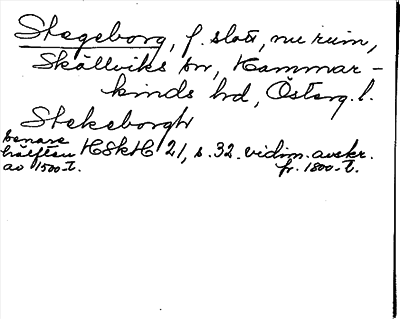 Stegeborg, f. slott, nu ruin,
Skällviks sn, Hammar-
kinds hd, Österg. l.
Stekeborgh
senare
hälften HSkH 21, s. 32. vidim. avskr.
av 1500-t. fr. 1800-t.